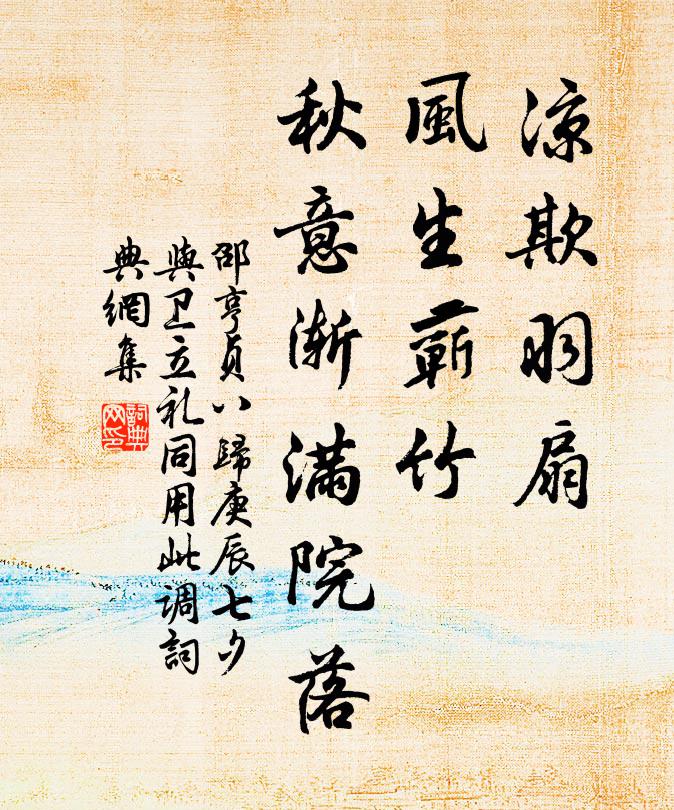 凉欺羽扇
風生蘄竹
秋意渐满院落
邵亨貞八歸庚辰七夕
與卫立礼同用此调詞
典網集
詞典網印